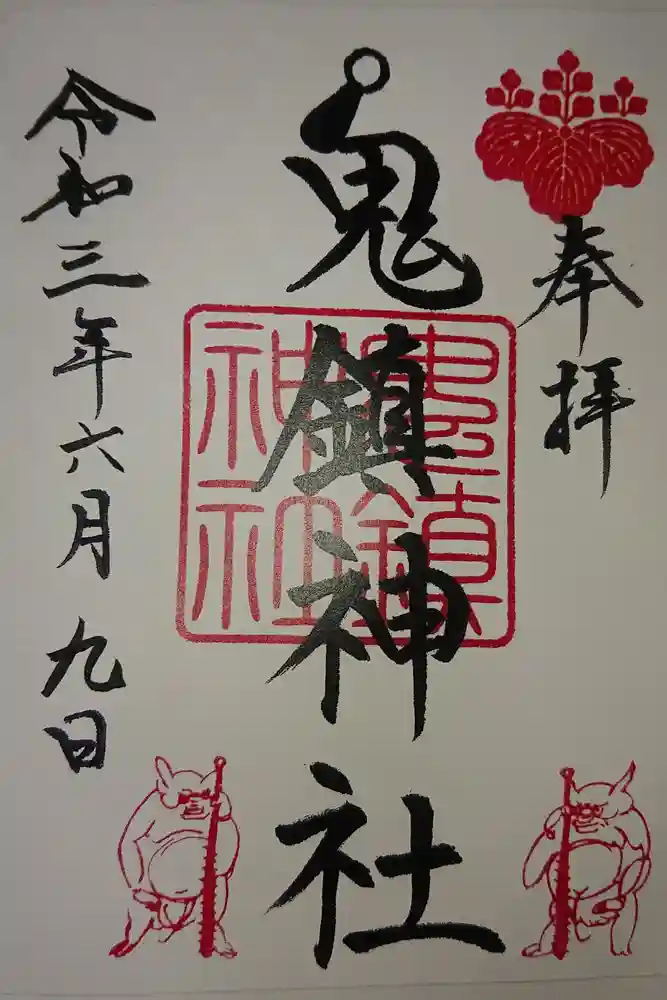 奉拝
鬼鎮神社
鬼鎮
神社
令和三年六月九日